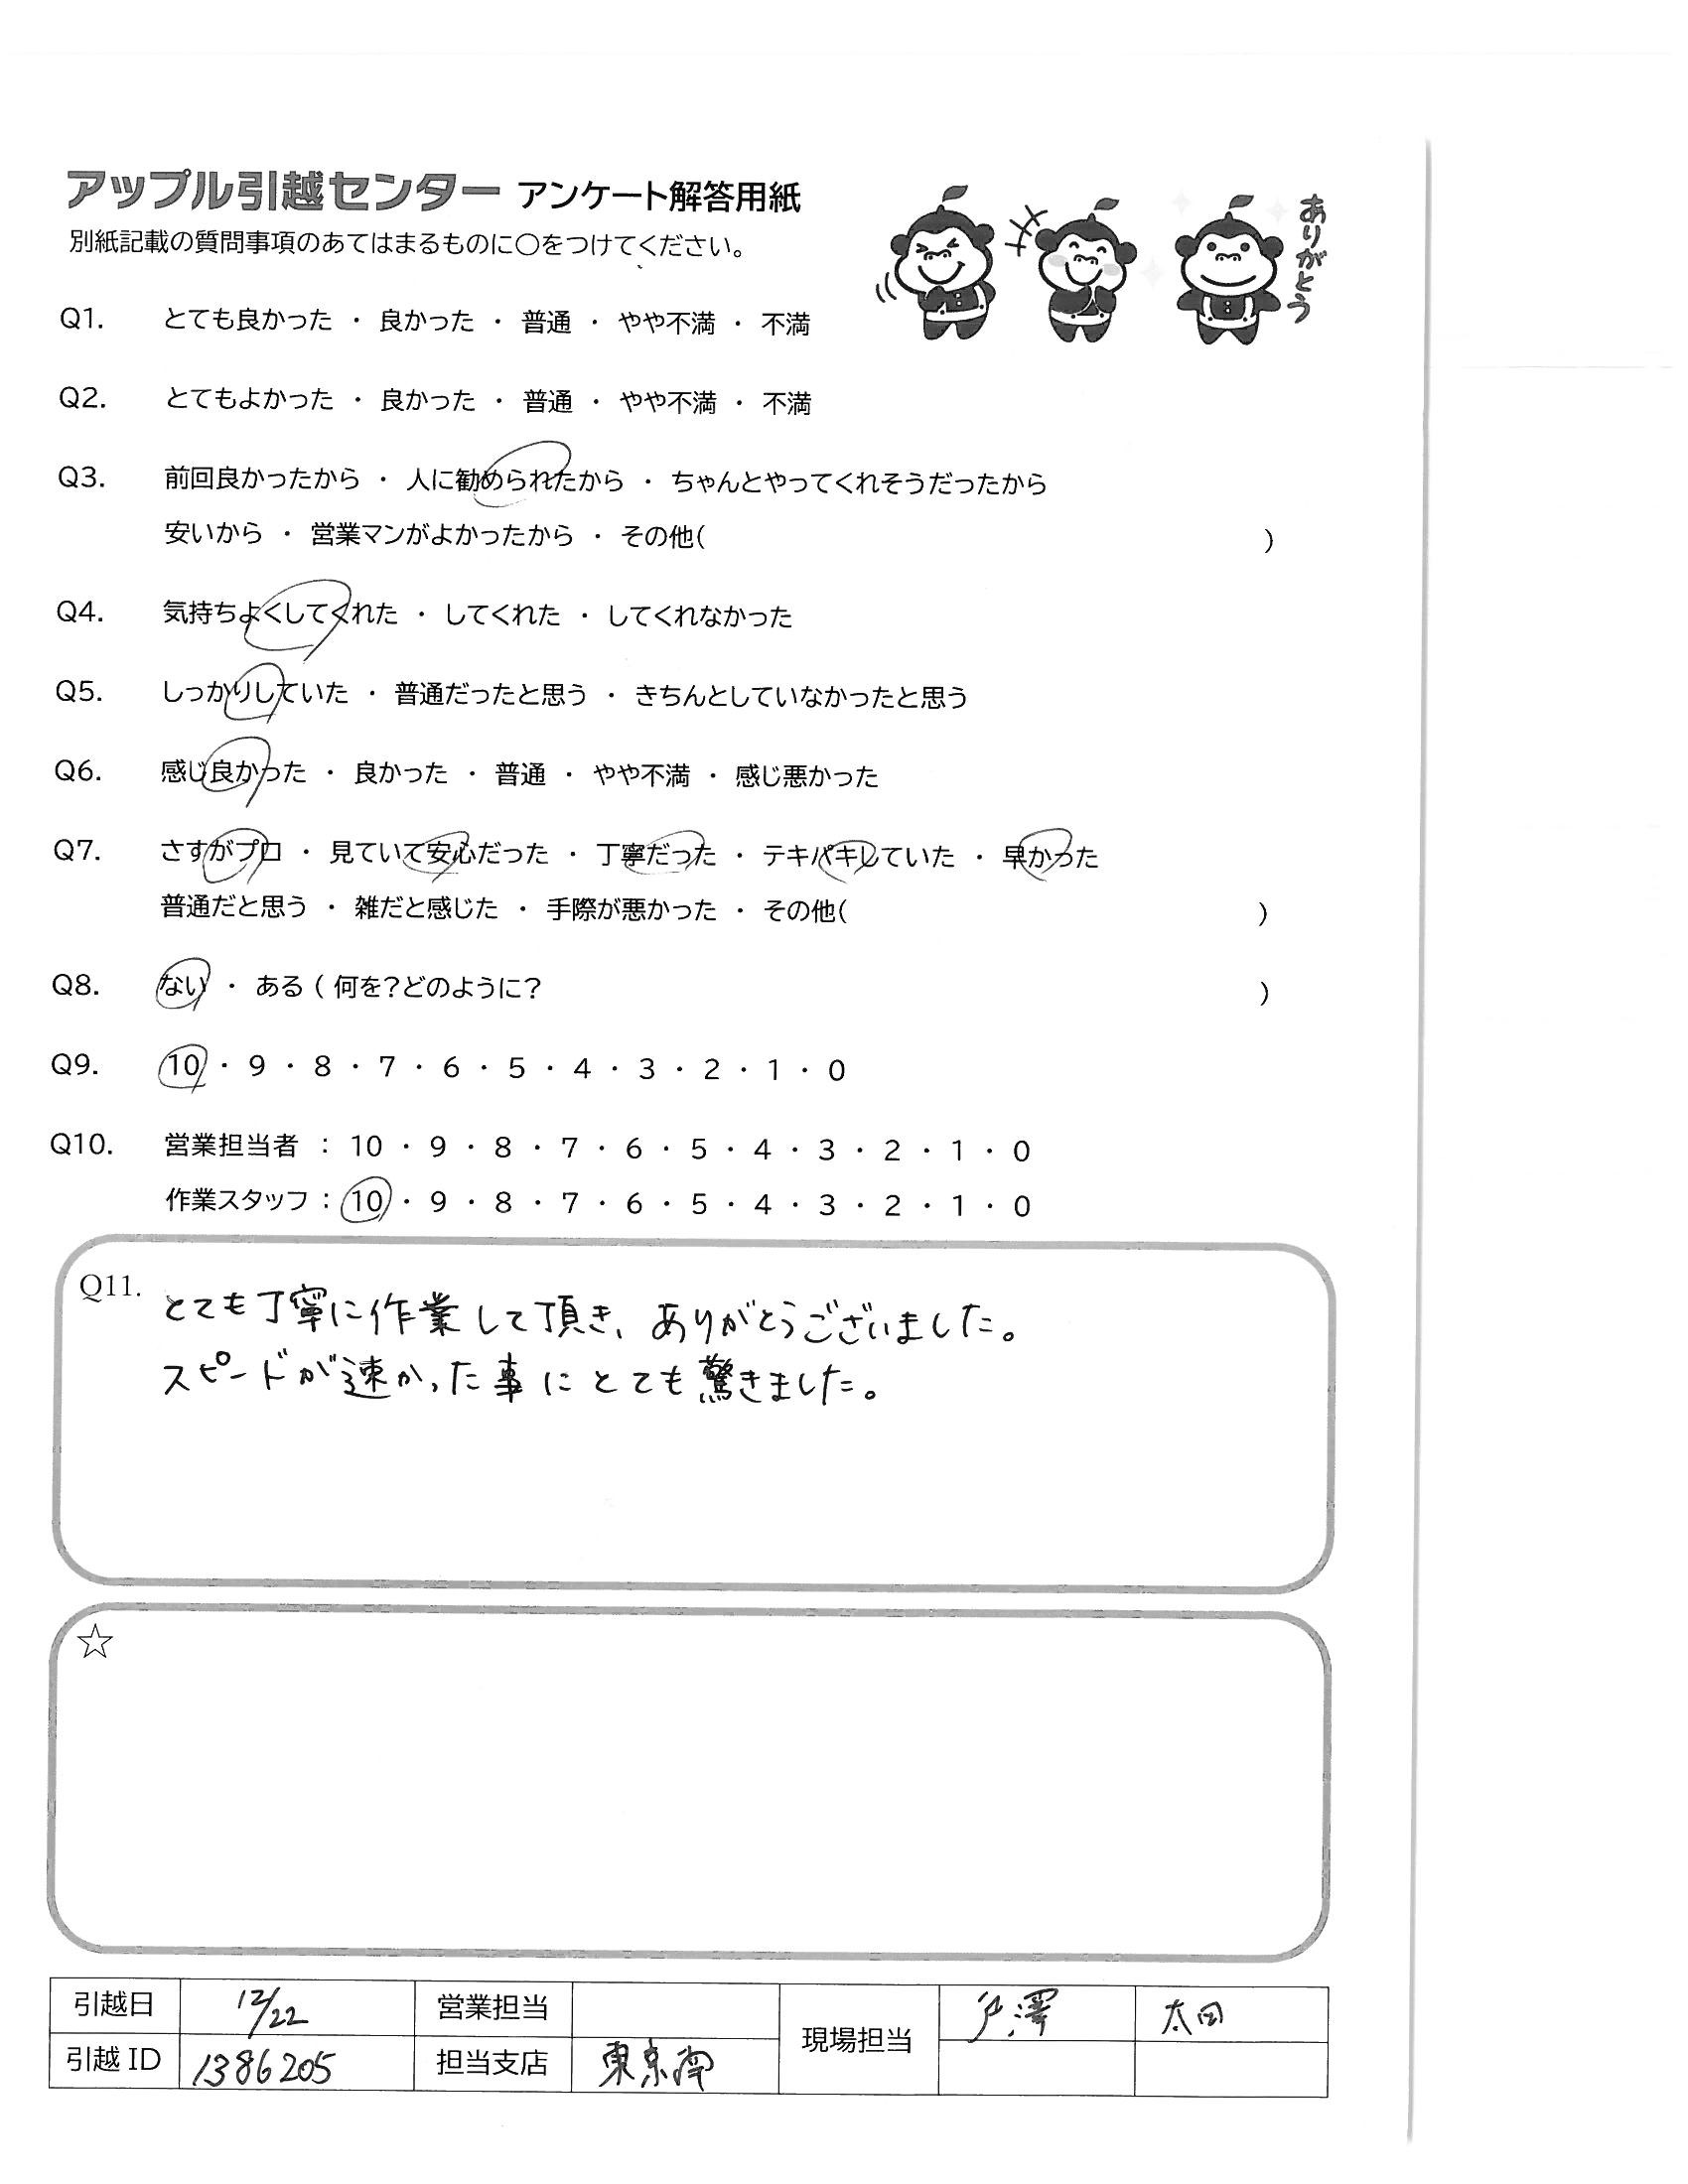 アップル引越センター アンケート解答用紙
別紙記載の質問事項のあてはまるものに○をつけてください。
ありがとう
Q1. とても良かった ・ 良かった ・ 普通 ・ やや不満 ・ 不満
Q2. とてもよかった ・ 良かった ・ 普通 ・ やや不満 ・ 不満
Q3. 前回良かったから ・ 人に勧められたから ・ ちゃんとやってくれそうだったから
安いから ・ 営業マンがよかったから ・ その他( )
Q4. 気持ちよくしてくれた ・ してくれた ・ してくれなかった
Q5. しっかりしていた ・ 普通だったと思う ・ きちんとしていなかったと思う
Q6. 感じ良かった ・ 良かった ・ 普通 ・ やや不満 ・ 感じ悪かった
Q7. さすがプロ ・ 見ていて安心だった ・ 丁寧だった ・ テキパキしていた ・ 早かった
普通だと思う ・ 雑だと感じた ・ 手際が悪かった ・ その他( )
Q8. ない ・ ある ( 何を?どのように? )
Q9. 10 ・ 9 ・ 8 ・ 7 ・ 6 ・ 5 ・ 4 ・ 3 ・ 2 ・ 1 ・ 0
Q10. 営業担当者 : 10 ・ 9 ・ 8 ・ 7 ・ 6 ・ 5 ・ 4 ・ 3 ・ 2 ・ 1 ・ 0
作業スタッフ : 10 ・ 9 ・ 8 ・ 7 ・ 6 ・ 5 ・ 4 ・ 3 ・ 2 ・ 1 ・ 0
Q11. とても丁寧に作業して頂き、ありがとうございました。
スピードが速かった事にとても驚きました。
☆
引越日 12/22 営業担当 現場担当 戸澤 太田
引越 ID 1386205 担当支店 東京南